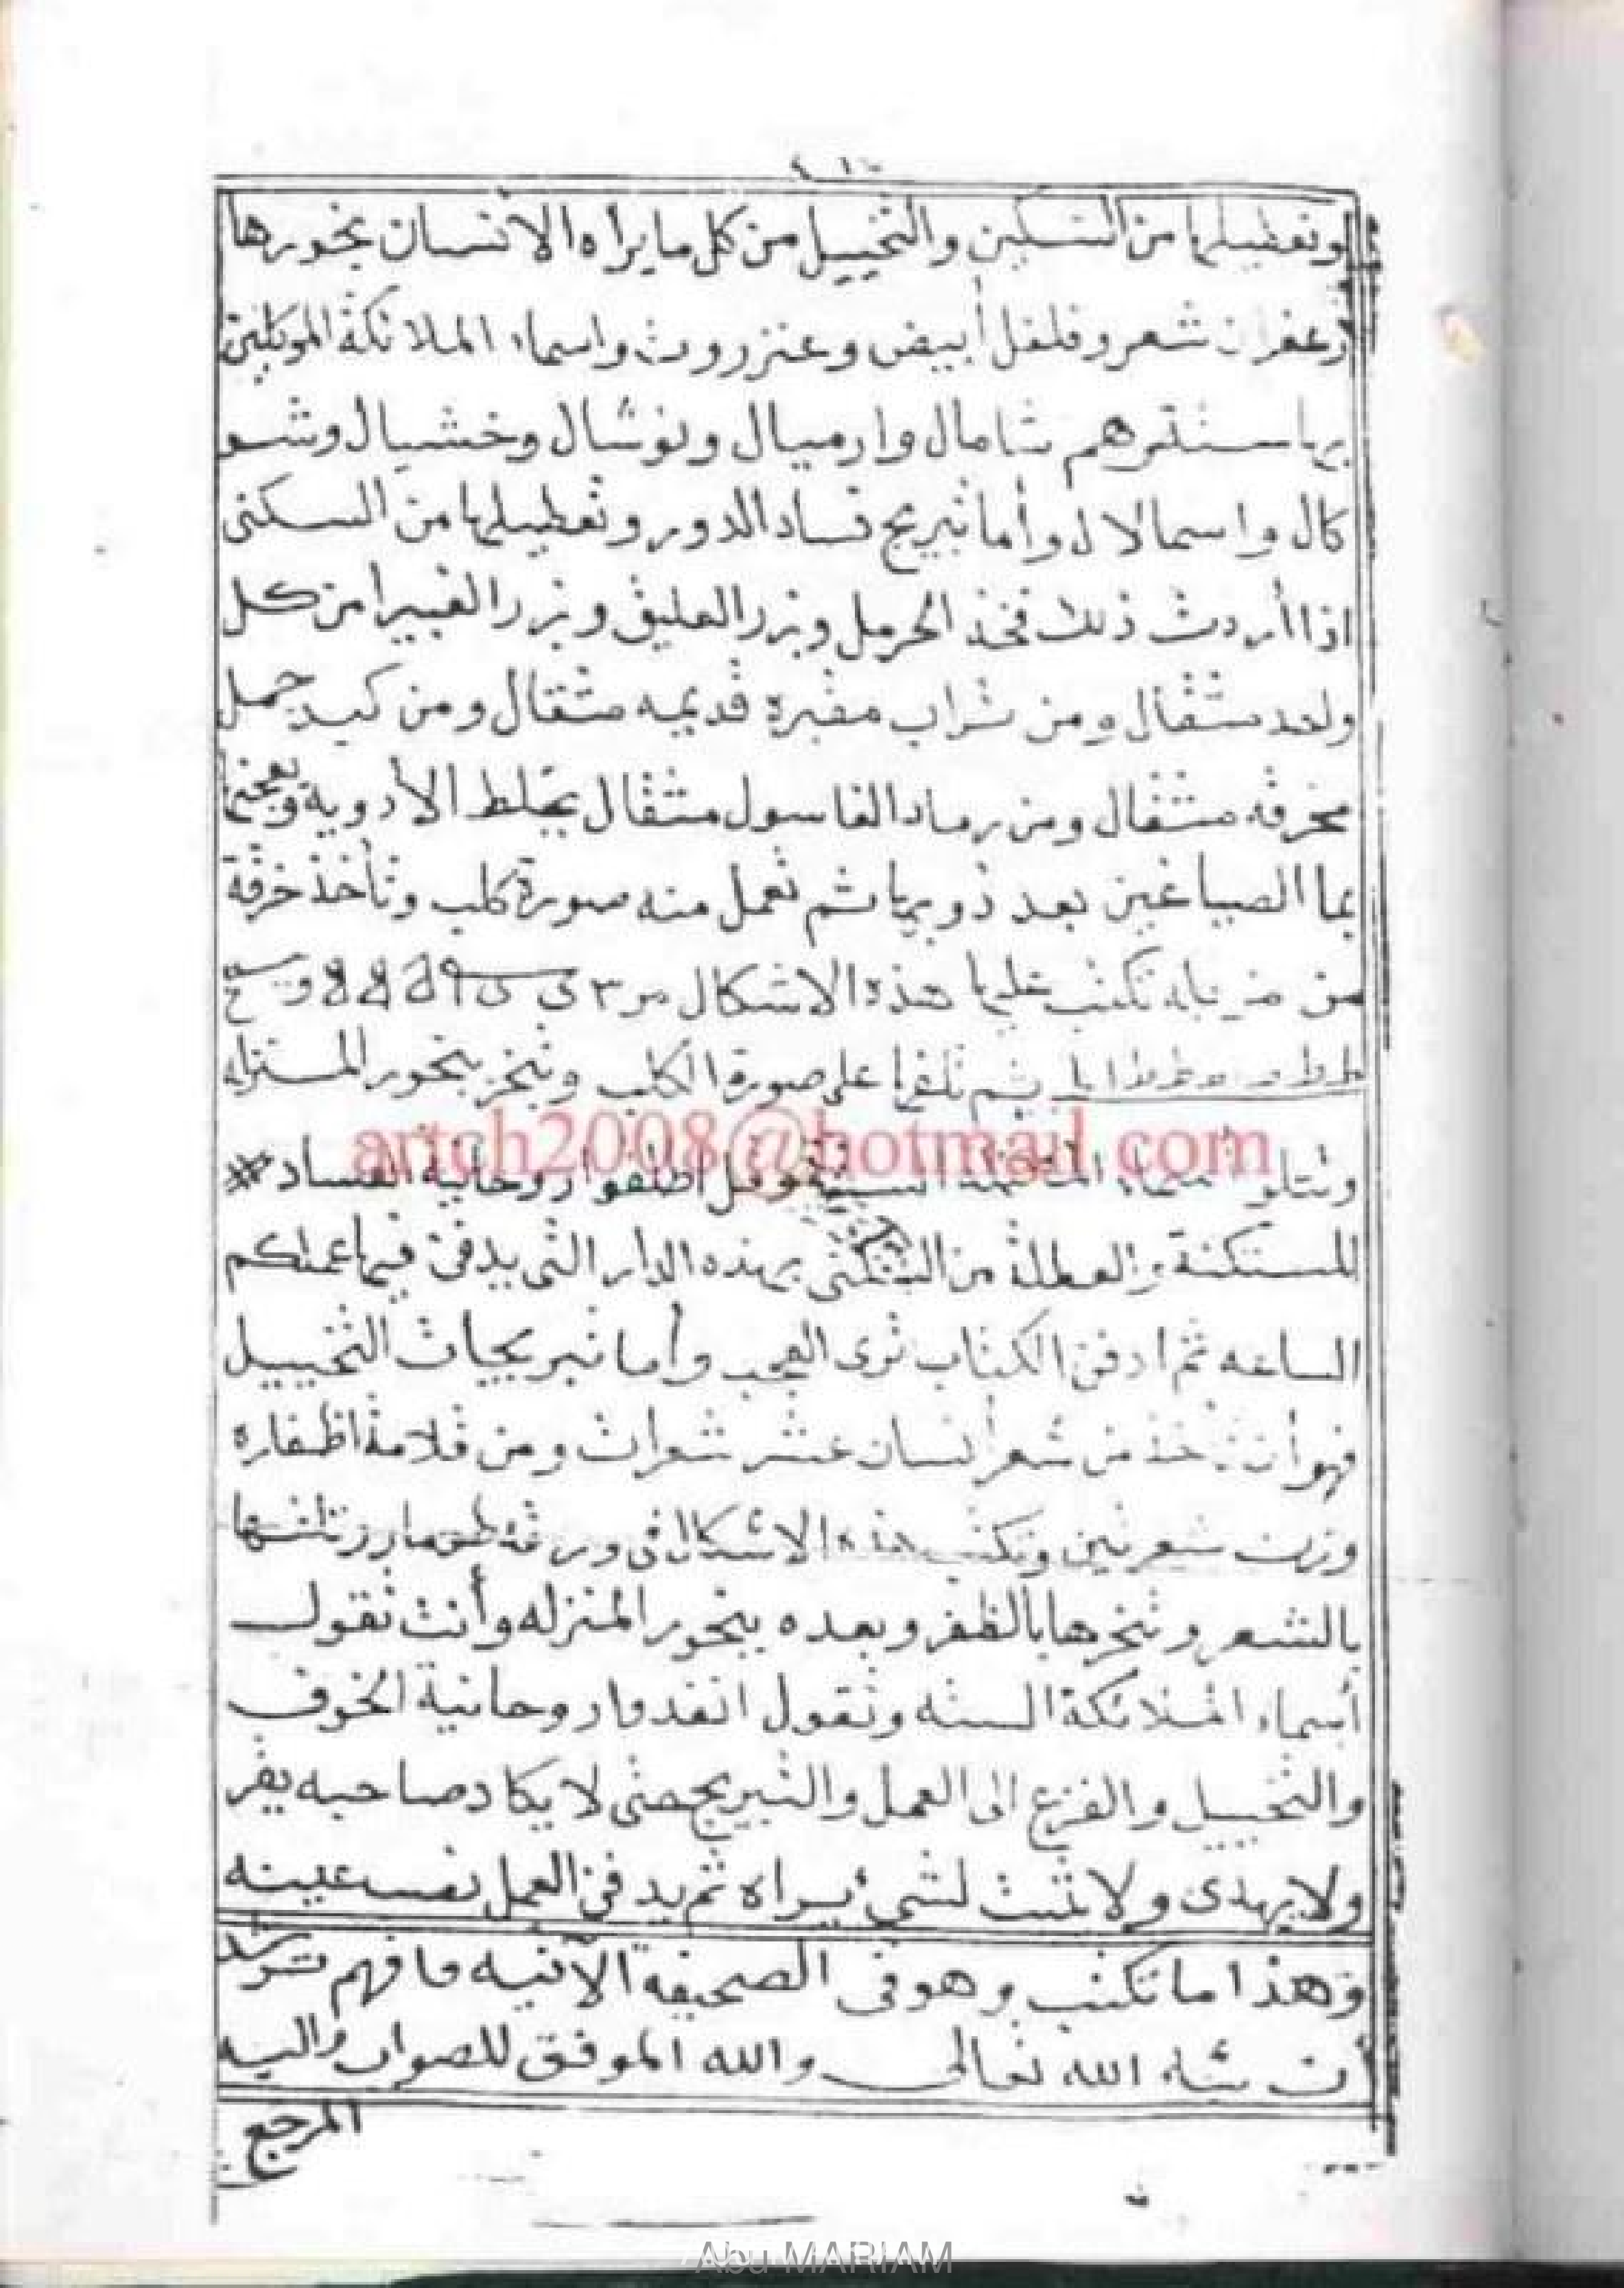 وتعطيلها من التسكين والتخييل من كل ما يراه الانسان بخورها
زعفران شعر وفلفل أبيض وعنزروت واسماء الملائكة الموكلين
بها ستة هم شامال وارميال ونوشال وخشيال وشو
كال واسمالال وأما نيريج فساد الدور وتعطيلها من السكنى
اذا أردت ذلك فخذ الحرمل وبزر العليق وبزر الغبيرا من كل
واحد مثقال ومن تراب مقبرة قديمه مثقال ومن كبد جمل
محرقه مثقال ومن رماد الغاسول مثقال يخلط الأدوية وتعجنها
بما الصباغين بعد ذوبها ثم تعمل منه صورة كلب وتأخذ خرقة
من مزبله تكتب عليها هذه الاشكال
ثم تلفها على صورة الكلب وتبخر ببخور المنزله
وتتلو الستة وقل اطلقوا روحانية الفساد
للمستكنة والعطلة من السكنى بهذه الدار التى يدفن فيها عملكم
الساعه ثم ادفن الكتاب ترى العجب وأما نيريجات التخييل
فهو أن تأخذ من شعر انسان عشر شعرات ومن قلامة اظفاره
وزن شعرتين وتكتب هذه الاشكال فى ورقة
بالشعر وتبخرها بالظفر وبعده ببخور المنزله وأنت تقول
أسماء الملائكة السته وتقول انفذوا روحانية الخوف
والتخييل والفزع الى العمل والنيريج حتى لا يكاد صاحبه يقر
ولا يهدى ولا تثبت لشىء يراه ثم يدفن العمل نفس عينه
وهذا ما تكتب وهو فى الصحيفة الآتيه فافهم ترشد
أن شاء الله تعالى والله الموفق للصواب واليه
المرجع
artch2008@hotmail.com
Abu MARIAM